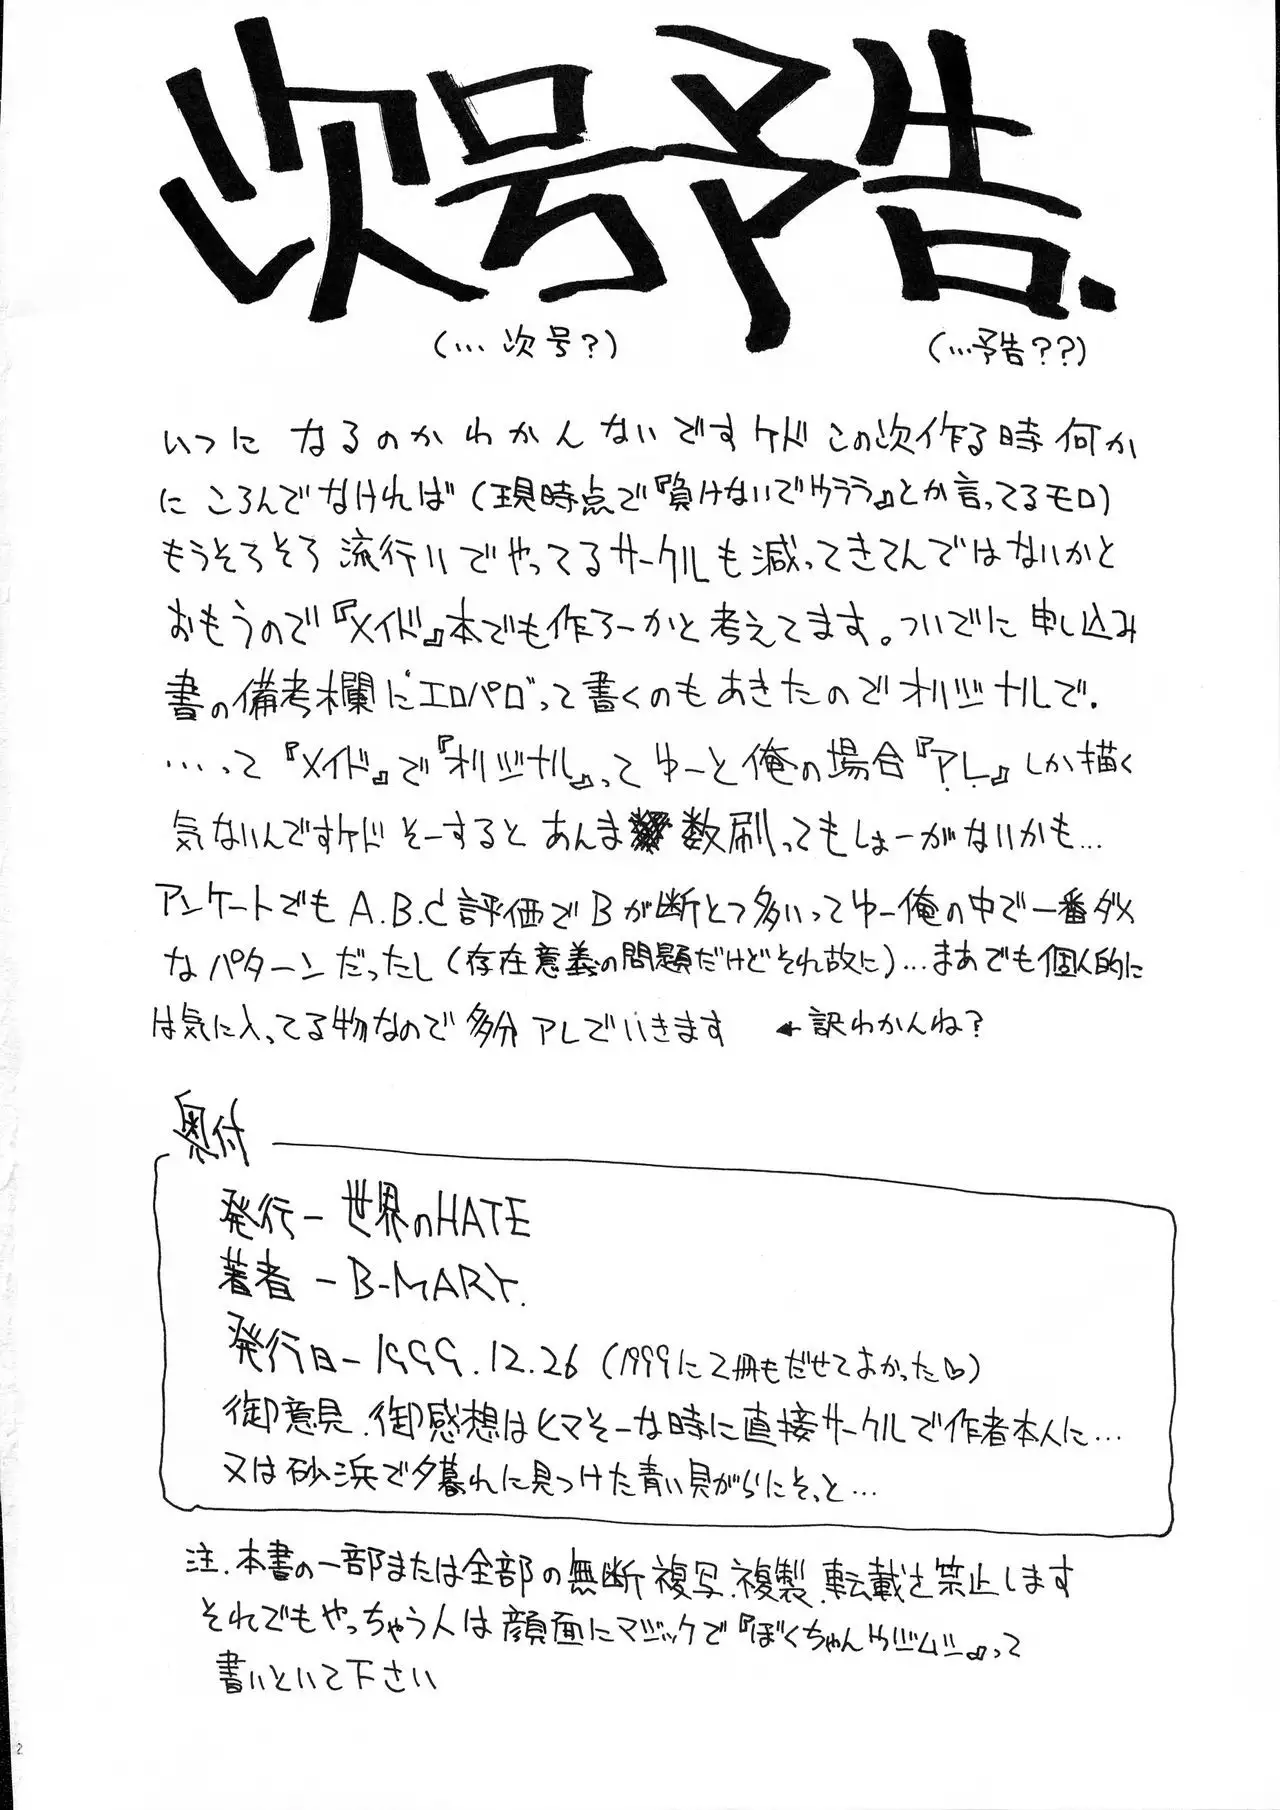 次号予告.
(…次号?) (…予告??)
いつに なるのかわかんないですケド この次作る時 何か
に ころんでなければ (現時点で『負けないでウララ』とか言ってるモロ)
もうそろそろ 流行りでやってるサークルも減ってきてんではないかと
おもうので『メイド』本でも作ろーかと考えてます。ついでに申し込み
書の備考欄に"エロパロ"って書くのもあきたのでオリジナルで.
…って『メイド』で『オリジナル』ってゆーと俺の場合『P.L.』しか描く
気ないんですケド そーすると あんま 数刷ってもしょーがないかも…
アンケートでも A.B.C評価でBが断とつ多いってゆー俺の中で一番ダメ
なパターンだったし (存在意義の問題だけどそれ故に)…まあでも個人的に
は気に入ってる物なので多分アレでいきます ←訳わかんね?
奥付
発行ー世界のHATE
著者ーB-MARY.
発行日ー1999.12.26 (1999に2冊もだせてよかった♡)
御意見.御感想はヒマそーな時に直接サークルで作者本人に…
又は砂浜で夕暮れに見つけた青い貝がらにそっと…
注.本書の一部または全部の無断複写.複製.転載を禁止します
それでもやっちゃう人は顔面にマジックで『ぼくちゃん
って
書いといて下さい
2